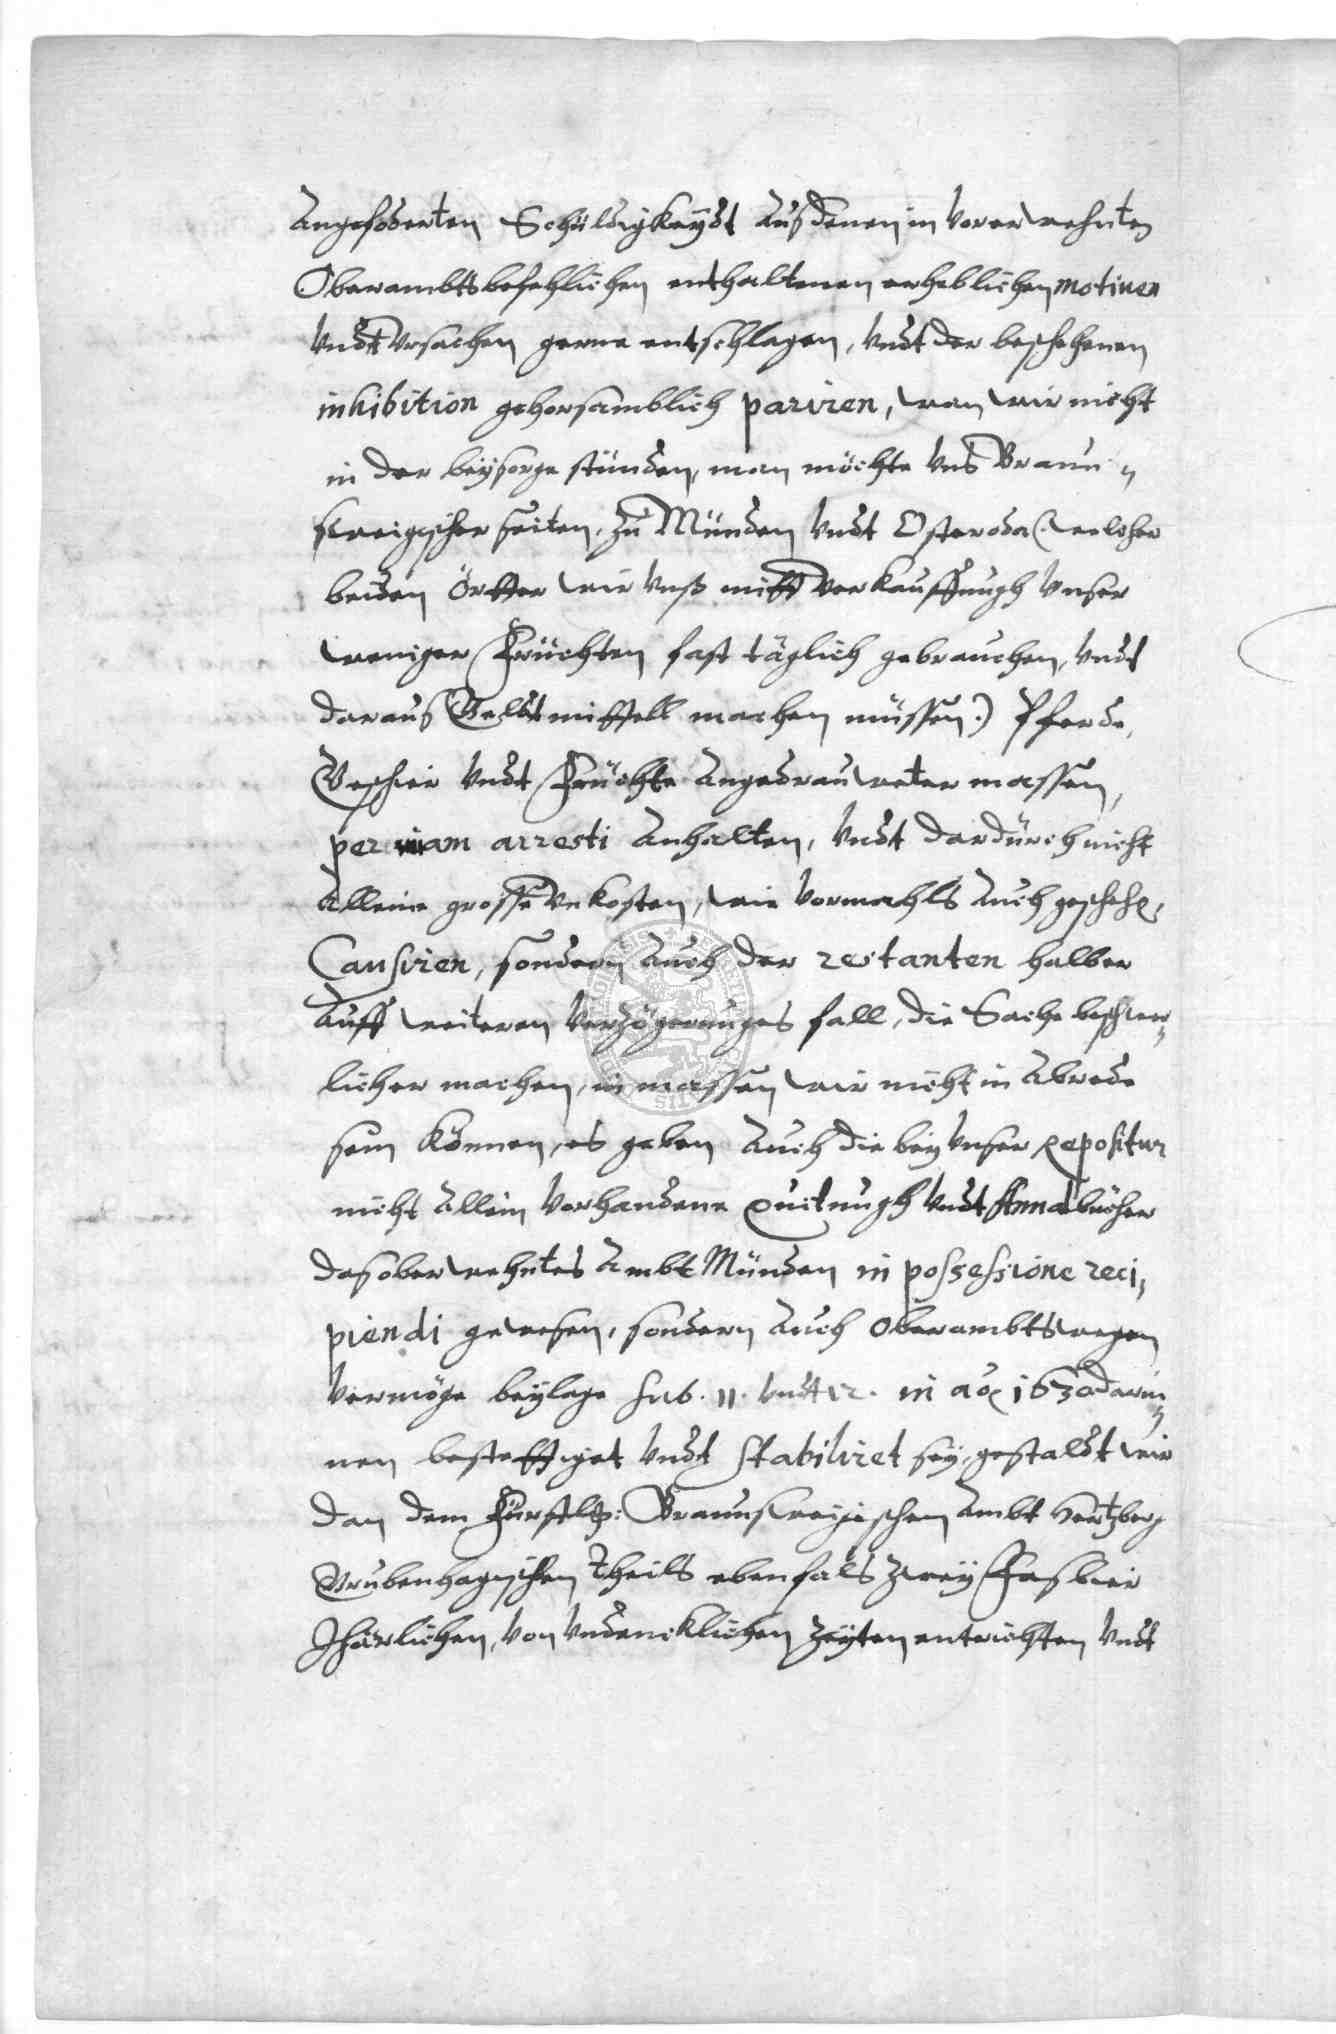 angefoderten Schüldigkeydt aus denen in vorerwehnten
Oberambtsbefehlichen enthaltenen erheblichen motiven
vndt vrsachen gerne entschlagen, vndt der beschehenen
inhibition gehorsamblich pariren, wan wir nicht
in der beysorge stünden, man möchte vns Braun„
schweigischer seiten, zu Münden vndt Osteroda (: welcher
beiden örtter wir vnß mitt verkauffungh vnser
weniger Früchten fast täglich gebrauchen, vndt
daraus Geldtmittell machen müssen :) Pferde,
Geschir vndt Früchte angedrauweter massen,
per viam arresti anhalten, vndt dardurch nicht
alleine grosse vnkosten, wie vormahls auch geschehen,
Causiren, sondern auch der restanten halber
auff weiteren verzögerunges fall, die Sache beschwer„
licher machen, in massen wir nicht in abrede
sein können, es geben auch die bey vnser repositur
nicht allein vorhandene quitungh vndt bücher
das oberwehntes Ambt Münden in possessione reci„
piendi gewesen, sondern auch Oberambts wegen
vermöge beylage sub. 11. vndt 12. in ao 1630 darin„
nen bestettiget vndt stabiliret sey, gestaldt wir
dan dem Fürstl: Braunschweigischen Ambt Hertzberg
Grubenhagischen theils ebenfals zwey Fas bier
Jhärlichen, von vndencklichen zeyten entrichten vndt